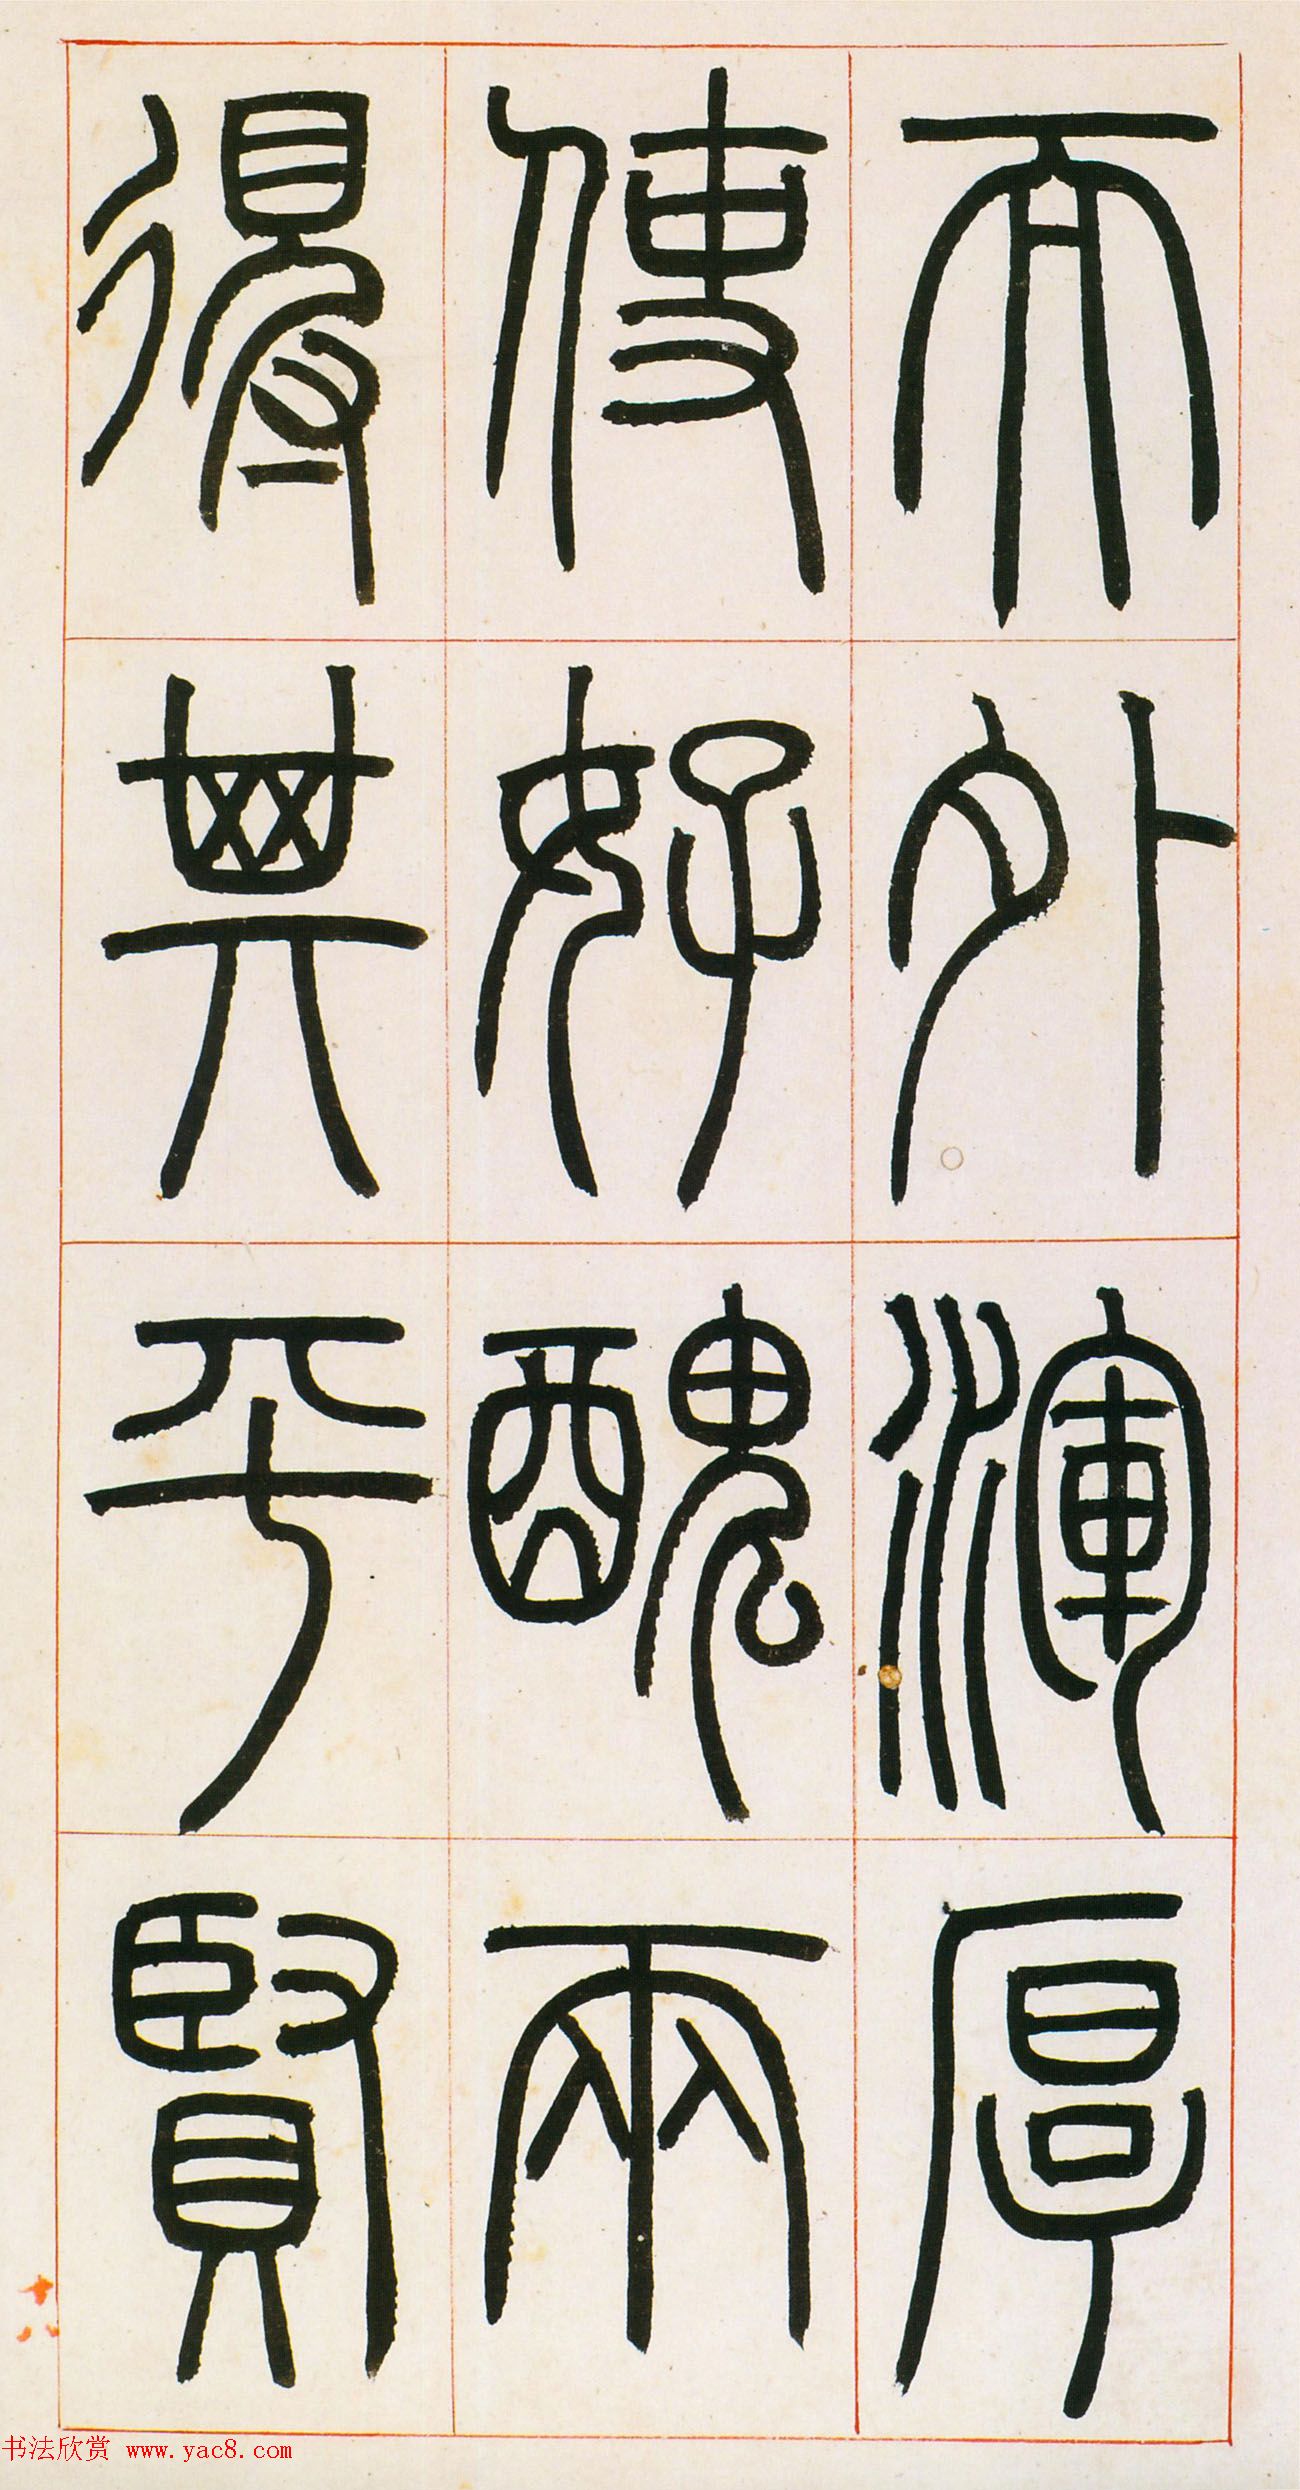 而外渾厚
使好醜兩
得其平賢
十八
书法欣赏 www.yac8.com